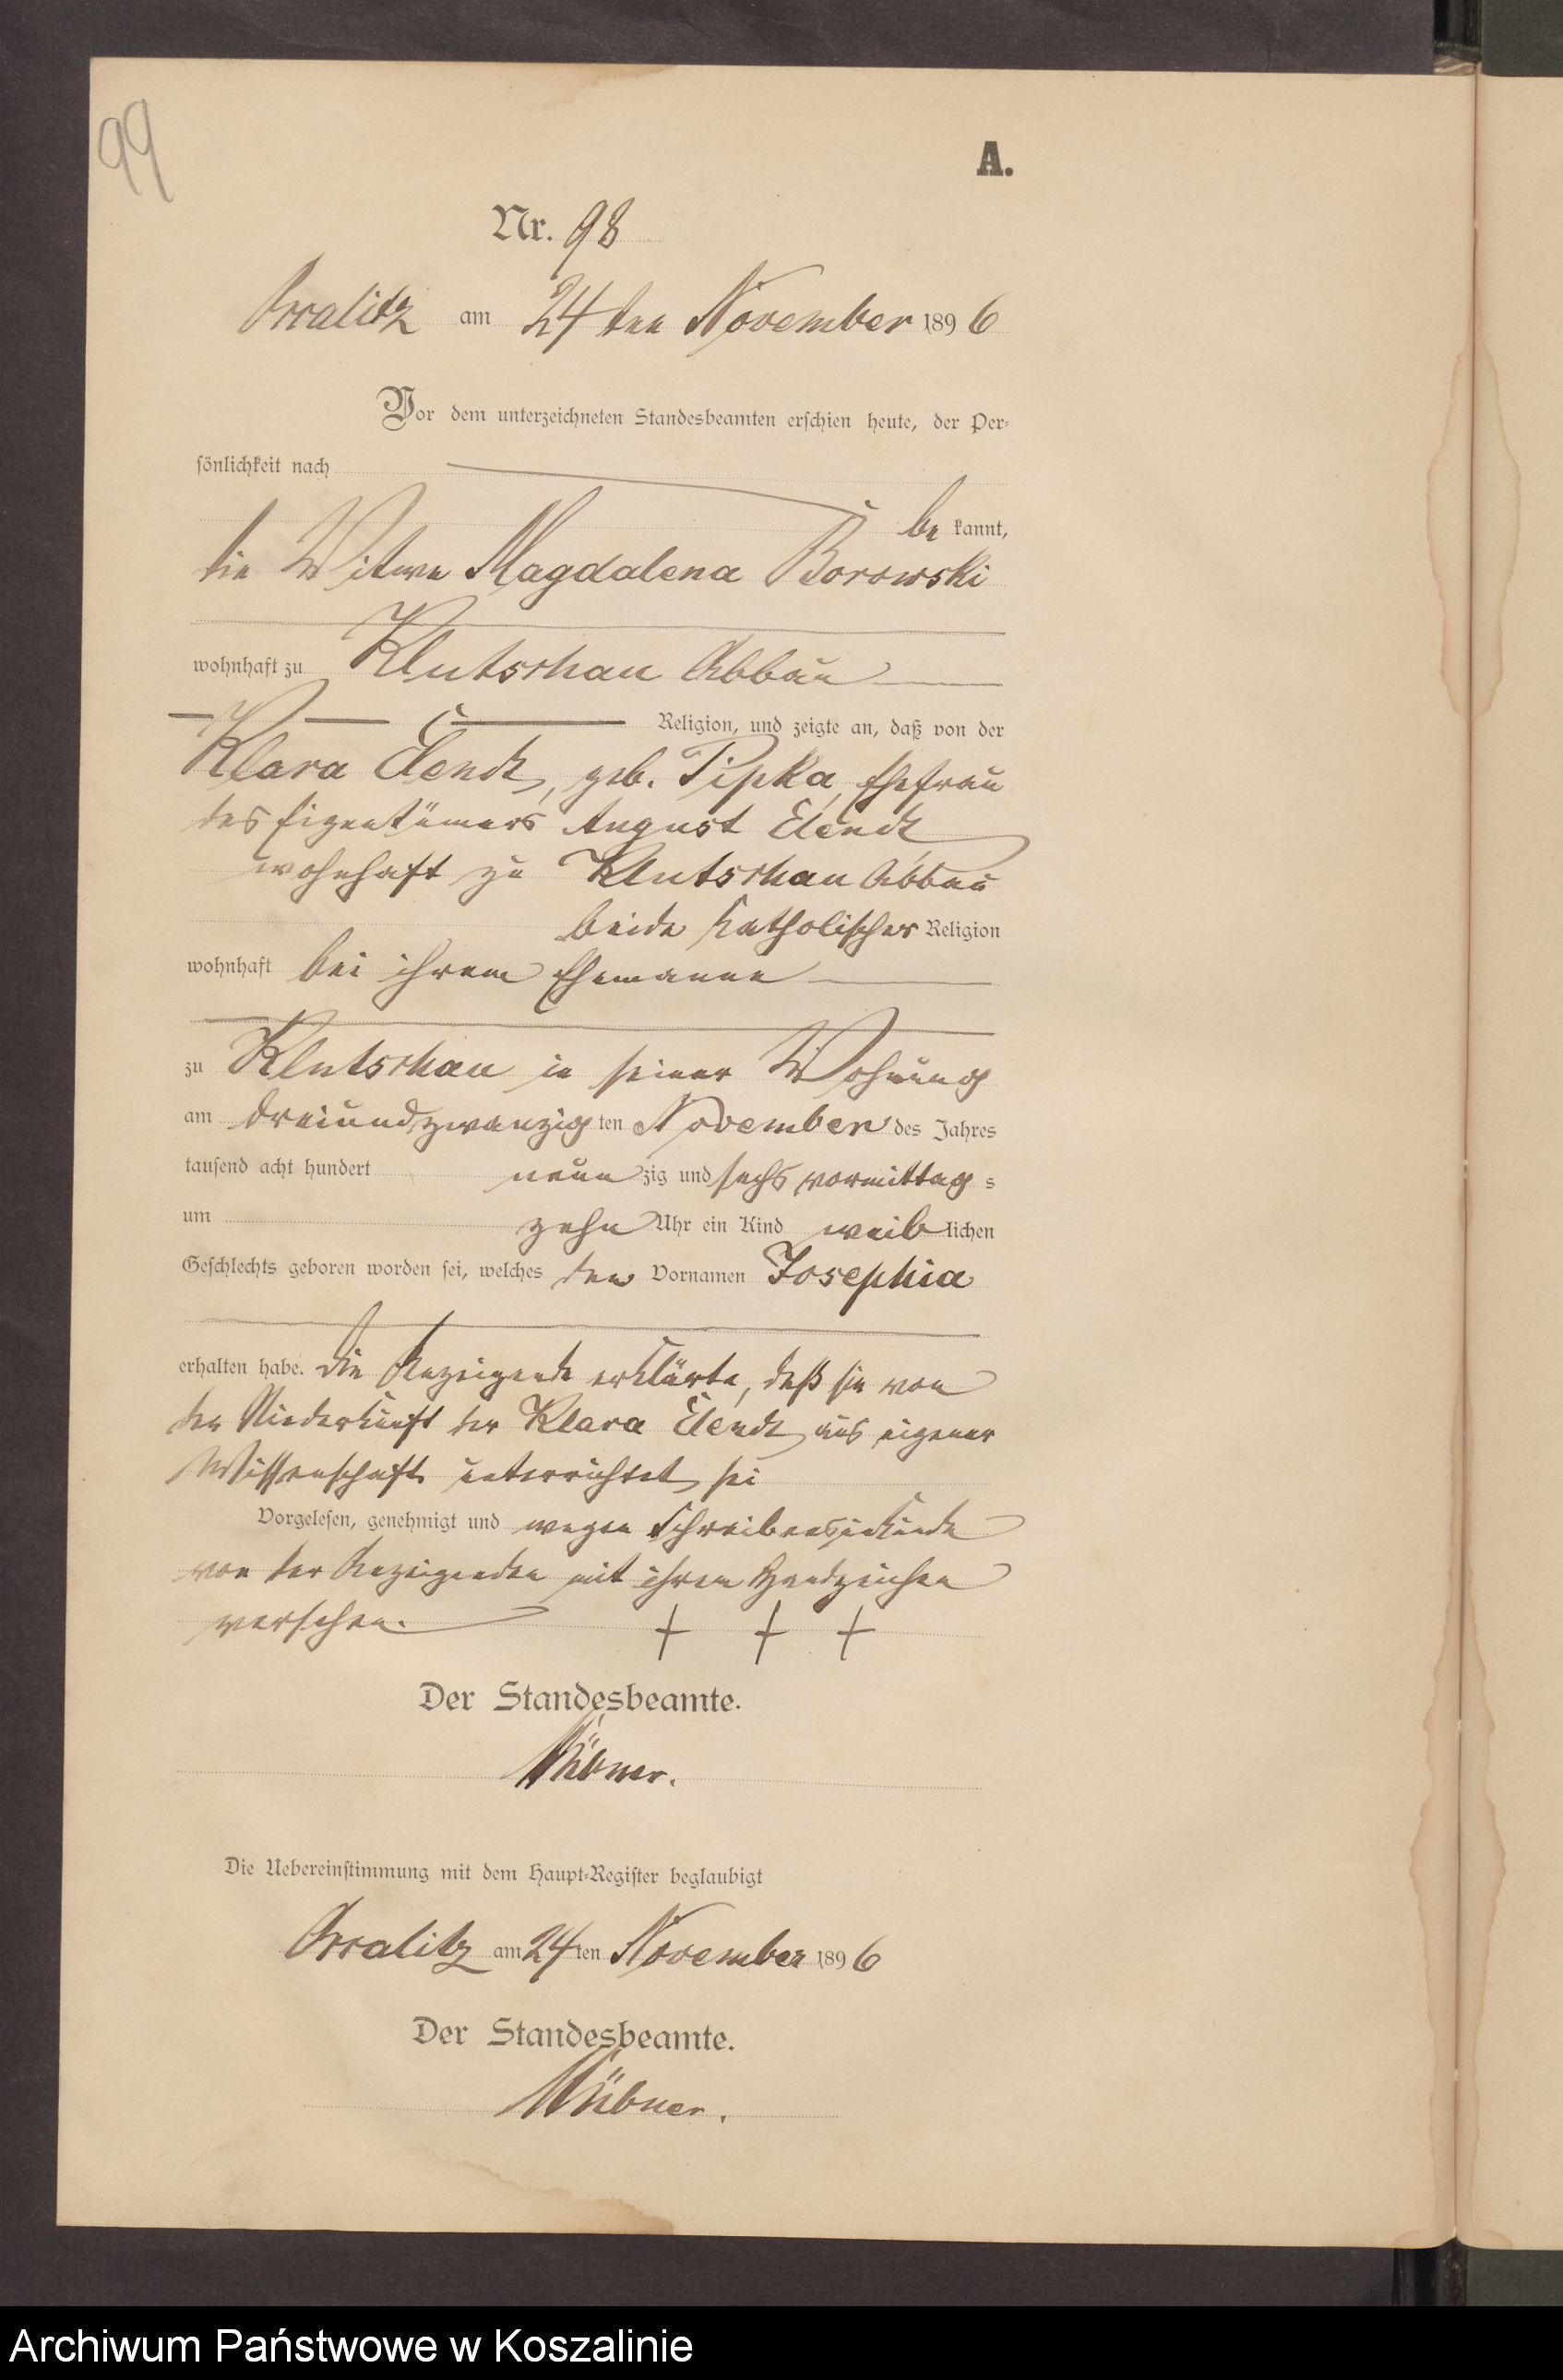 99
A.
Nr. 98
Occalitz am 24ten November 1896
Vor dem unterzeichneten Standesbeamten erschien heute, der Per-
sönlichkeit nach
bekannt,
die Witwe Magdalena Borowski
wohnhaft zu Klutschau Abbau
Religion, und zeigte an, daß von der
Klara Elendt, geb. Pipka, Ehefrau
des Eigentümers August Elendt
wohnhaft zu Klutschau Abbau
beide katholischer Religion
wohnhaft bei ihrem Ehemanne
zu Klutschau in seiner Wohnung
am dreiundzwanzigten November des Jahres
tausend acht hundert neunzig und sechs vormittags
um zehn Uhr ein Kind weiblichen
Geschlechts geboren worden sei, welches den Vornamen Josephia
erhalten habe. Die Anzeigende erklärte, daß sie von
der Niederkunft der Klara Elendt aus eigener
Wissenschaft unterrichtet sei
Vorgelesen, genehmigt und wegen Schreibensunkunde
von der Anzeigenden mit ihrem Handzeichen
versehen. + + +
Der Standesbeamte.
Die Uebereinstimmung mit dem Haupt-Register beglaubigt
Occalitz am 24ten November 1896
Der Standesbeamte.
Archiwum Państwowe w Koszalinie